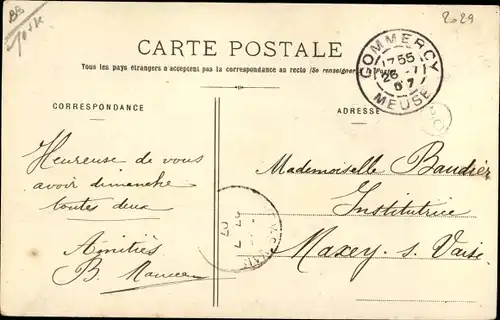 2029
CARTE POSTALE
Tous les pays étrangers n'acceptent pas la correspondance au recto (Se renseigner à la Poste)
COMMERCY
1755
26 - 7
07
MEUSE
CORRESPONDANCE
ADRESSE
Heureuse de vous
avoir dimanche
toutes deux
Amitiés
B.
Mademoiselle Baudier
Institutrice
Maxey. s. Vaise